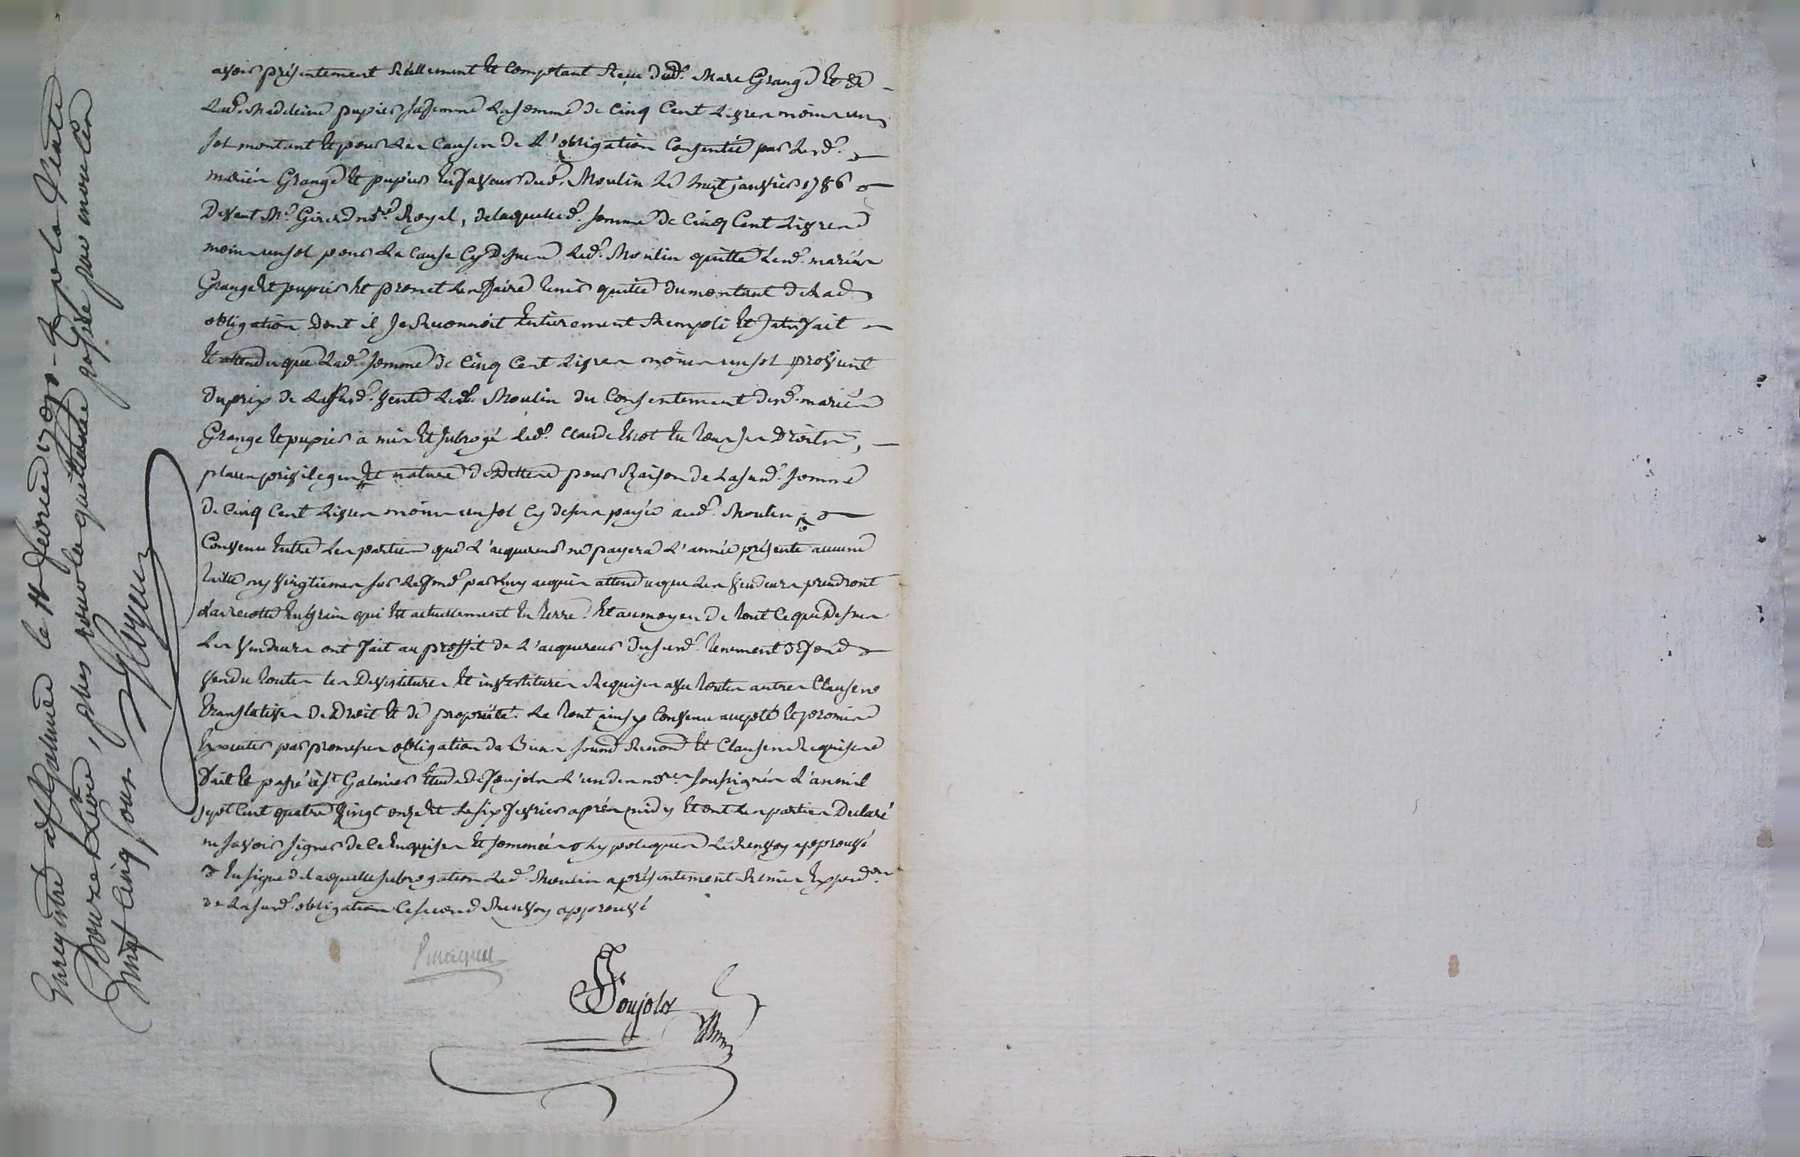 avoir présentement Réellement et Comptant Reçu dud. Marc Grange et de
Lad. Madeleine pupier sa femme La somme de Cinq Cent Livres moins un
sol montant et pour Les Causes de L'obligation Consentie par Lesd.
mariés Grange et pupier En faveur dud. Moulin Le huit janvier 1786
Devant Me. Girard nre. Royal, de laquelle d. somme de Cinq Cent Livres
moins un sol pour La Cause Cy Dessus Led. Moulin quitte Lesd. mariés
Grange et pupier et promet Les faire tenir quitte du montant de Lad.
obligation Dont il se Reconnoit Entierement Rempli et satisfait
Et attendu que Lad. somme de Cinq Cent Livres moins un sol provient
Du prix de La susd. vente Led. Moulin du Consentement desd. mariés
Grange et pupier a mis et subrogé Led. Claude En tous ses Droits,
place privileges et nature de Dettes pour Raison de La susd. somme
de Cinq Cent Livres moins un sol Cy dessus payée aud. Moulin ;
Convenu Entre Les parties que L'acquereur ne payera L'année présente aucune
taille ny vingtiemes sur Le fond par Luy acquis attendu que Les vendeurs prendront
La recolte En grain qui Est actuellement En terre. Et au moyen de tout Ce que Dessus
Les vendeurs ont fait au proffit de L'acquereur du susd. tenement de fond
vendu toutes les Devetitures et investitures Requises avec toutes autres Clauses
translatives de Droit et de propriété. Le tout ainsy Convenu accepté et promis
Executer par promesses obligation de Biens soumis Renond. et Clauses Requises
Fait et passé à St. Galmier Etude de Poujols L'un des nres. soussignés L'an mil
sept Cent quatre vingt onze et Le six fevrier après midy et ont Les parties Declaré
ne savoir signer de Ce Enquises et sommées Le Renvoy approuvé
Et En signe de Laquelle subrogation Led. Moulin a présentement Remis
de La susd. obligation Ce second Renvoy approuvé
Poujols
Enregistré à St Galmier le 11 fevrier 1791 - Reçu pour la vente
Douze Livre, pour la quittance passée par moulin
vingt Cinq sous